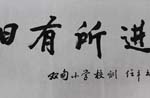 日有所进
双甸小学校训